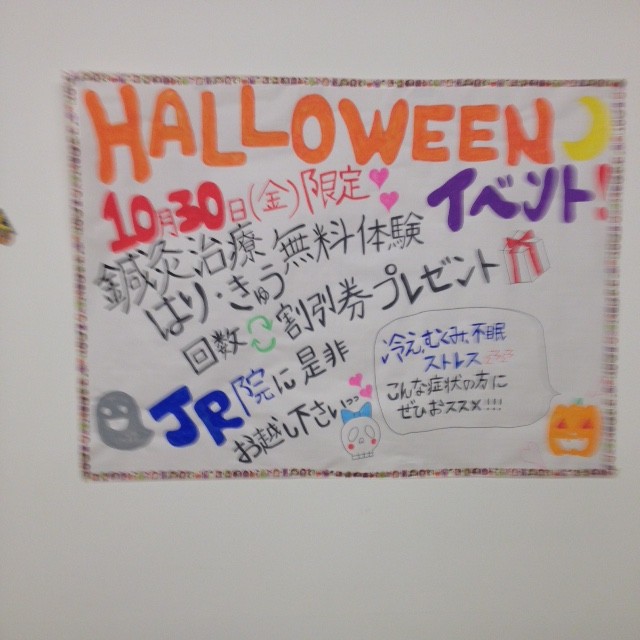 HALLOWEEN
イベント!
10月30日(金)限定
鍼灸治療無料体験
はり・きゅう
回数割引券プレゼント
JR院に是非
お越し下さいっっ
冷え、むくみ、不眠
ストレス
こんな症状の方に
ぜひおススメ!!!!